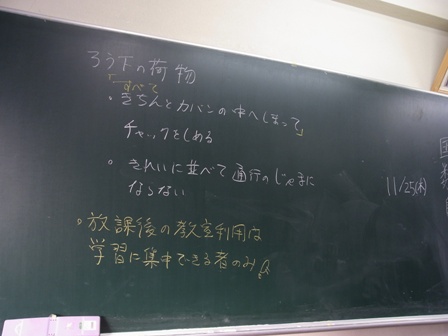 ろう下の荷物
「すべて
・きちんとカバンの中へしまって」
チャックをしめる
・きれいに並べて通行のじゃまに
ならない
11/25(木)
・放課後の教室利用は
学習に集中できる者のみ